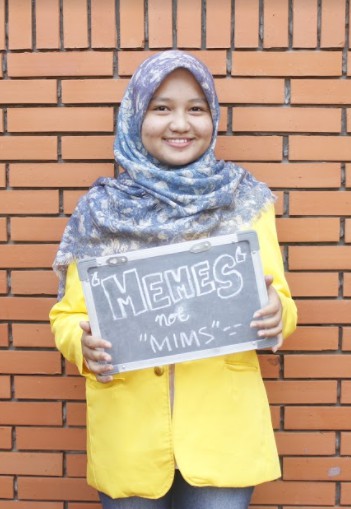 "MEMES"
not
"MIMS" --